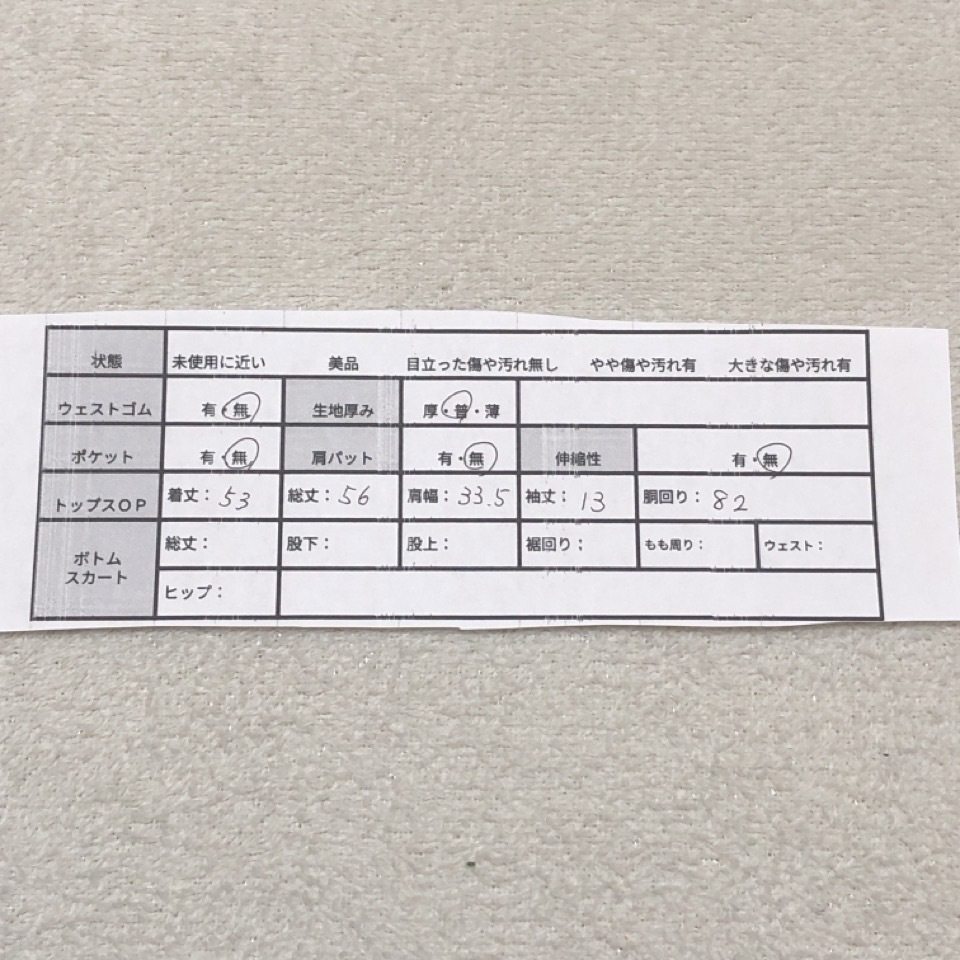 状態 未使用に近い 美品 目立った傷や汚れ無し やや傷や汚れ有 大きな傷や汚れ有
ウェストゴム 有・無 生地厚み 厚・普・薄
ポケット 有・無 肩パット 有・無 伸縮性 有・無
トップスOP 着丈：53 総丈：56 肩幅：33.5 袖丈：13 胴回り：82
ボトム
スカート
総丈： 股下： 股上： 裾回り； もも周り： ウェスト：
ヒップ：